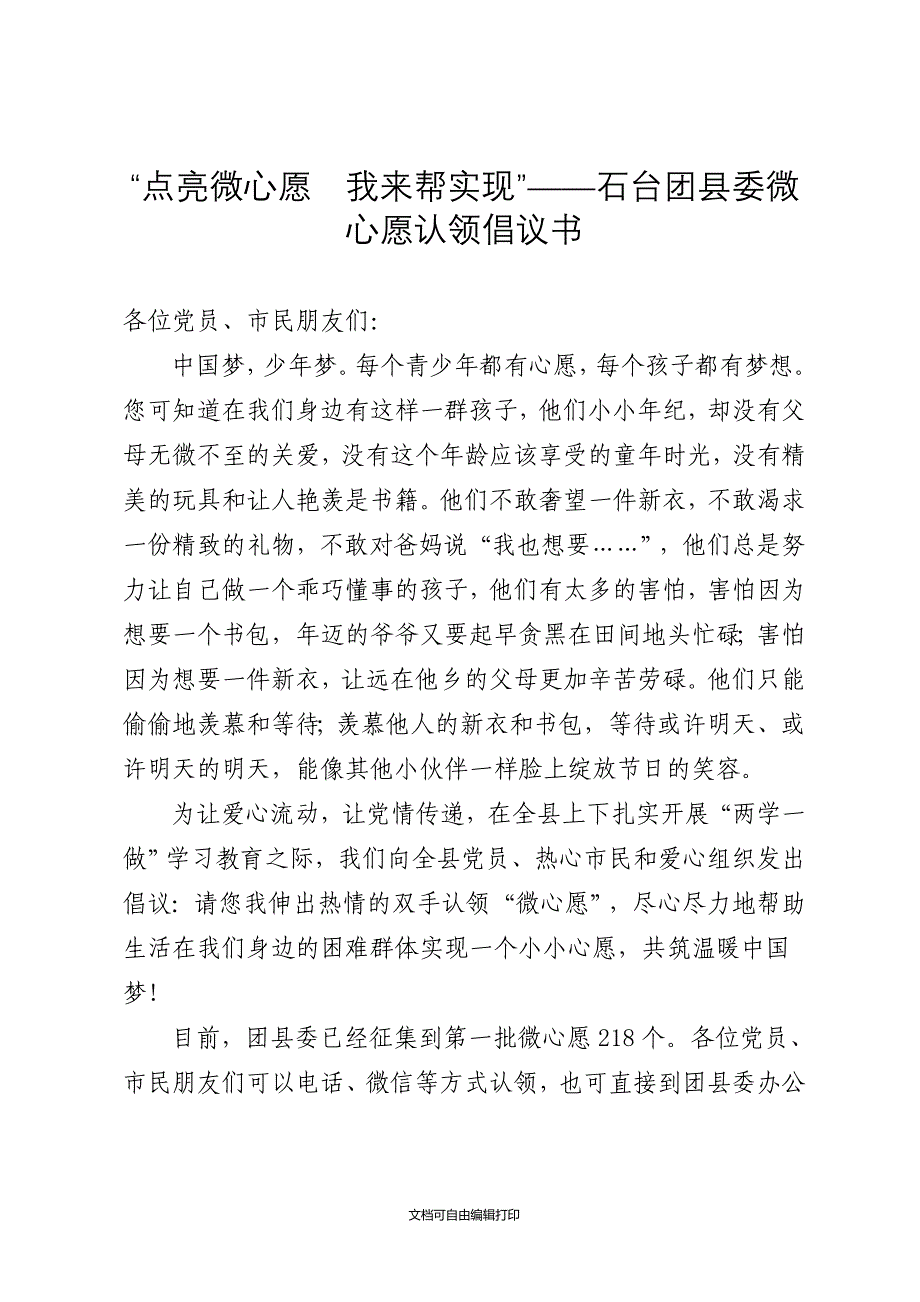 “点亮微心愿　我来帮实现”——石台团县委微
心愿认领倡议书
各位党员、市民朋友们：
中国梦，少年梦。每个青少年都有心愿，每个孩子都有梦想。
您可知道在我们身边有这样一群孩子，他们小小年纪，却没有父
母无微不至的关爱，没有这个年龄应该享受的童年时光，没有精
美的玩具和让人艳羡是书籍。他们不敢奢望一件新衣，不敢渴求
一份精致的礼物，不敢对爸妈说“我也想要……”，他们总是努
力让自己做一个乖巧懂事的孩子，他们有太多的害怕，害怕因为
想要一个书包，年迈的爷爷又要起早贪黑在田间地头忙碌；害怕
因为想要一件新衣，让远在他乡的父母更加辛苦劳碌。他们只能
偷偷地羡慕和等待；羡慕他人的新衣和书包，等待或许明天、或
许明天的明天，能像其他小伙伴一样脸上绽放节日的笑容。
为让爱心流动，让党情传递，在全县上下扎实开展“两学一
做”学习教育之际，我们向全县党员、热心市民和爱心组织发出
倡议：请您我伸出热情的双手认领“微心愿”，尽心尽力地帮助
生活在我们身边的困难群体实现一个小小心愿，共筑温暖中国
梦！
目前，团县委已经征集到第一批微心愿 218 个。各位党员、
市民朋友们可以电话、微信等方式认领，也可直接到团县委办公
文档可自由编辑打印